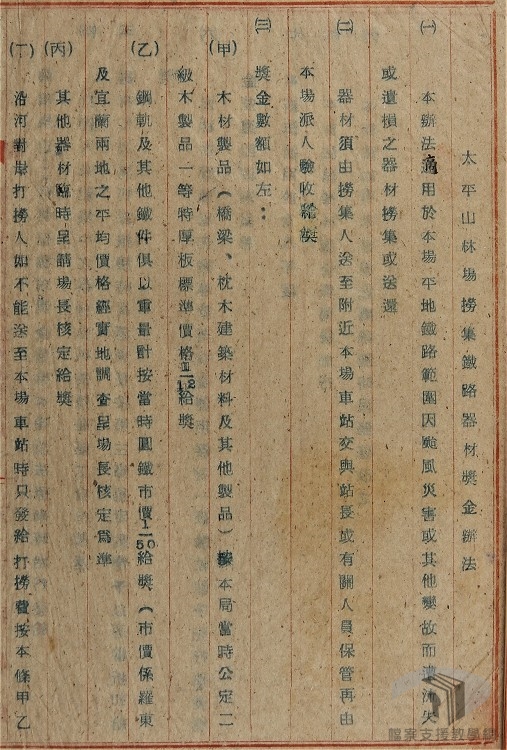 太平山林場撈集鐵路器材獎金辦法
㈠ 本辦法適用於本場平地鐵路範圍因颱風災害或其他變故而漂流失
或遺損之器材撈集或送還
㈡ 器材須由撈集人送至附近本場車站交與站長或有關人員保管再由
本場派人驗收給獎
㈢ 獎金數額如左：
(甲) 木材製品（橋梁、枕木建築材料及其他製品）按本局當時公定二
級木製品一等特厚板標準價格1/12給獎
(乙) 鋼軌及其他鐵件俱以重量計按當時圓鐵市價1/50給獎（市價係羅東
及宜蘭兩地之平均價格經實地調查呈場長核定為準
(丙) 其他器材臨時呈請場長核定給獎
(丁) 沿河對岸打撈人如不能送至本場車站時只發給打撈費按本條甲乙
檔案支援教學網